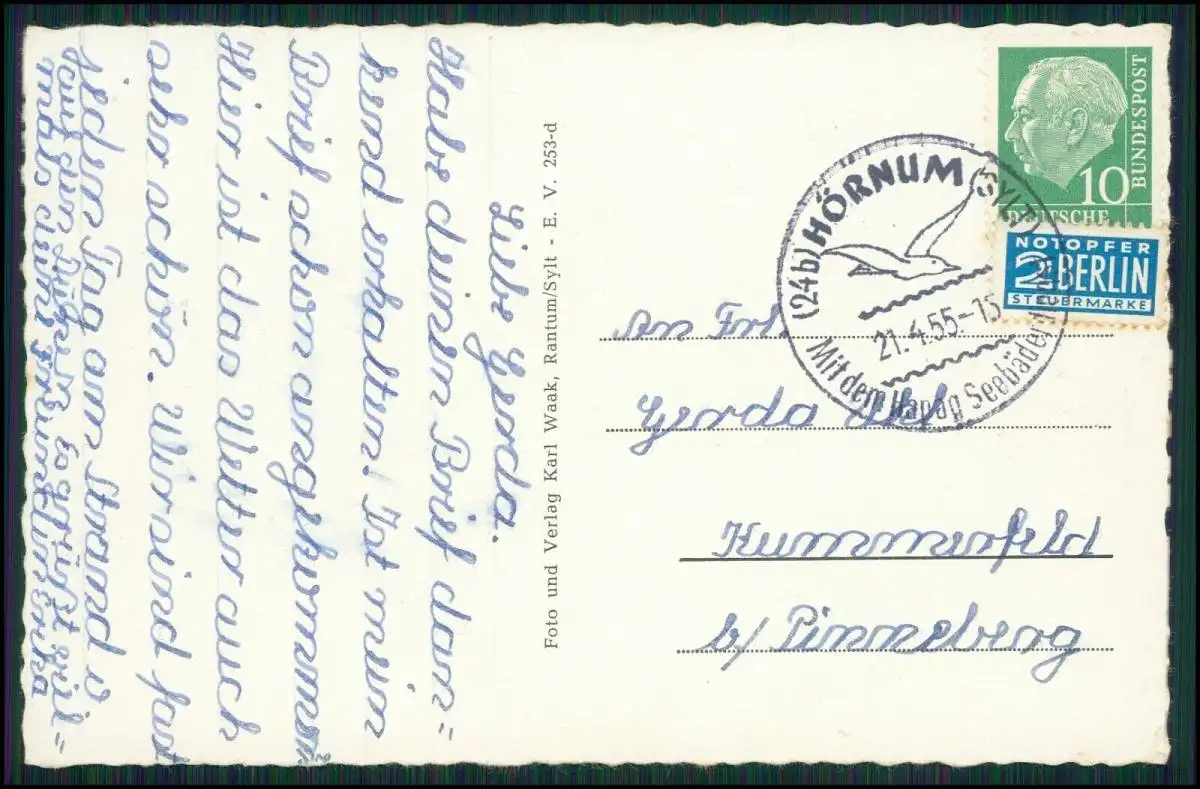 Liebe Gerda.
Habe deinen Brief dan=
kend erhalten. Ist mein
Brief schon angekommen?
Hier ist das Wetter auch
sehr schön. Wir sind fast
jeden Tag am Strand
auf den Dünen. Es grüßt viel=
mals deine Freundin Enka
Foto und Verlag Karl Waak, Rantum/Sylt - E. V. 253-d
BUNDESPOST
10
DEUTSCHE
NOTOPFER
2 BERLIN
STEUERMARKE
(24b) HÖRNUM (SYLT)
21.4.55-15
Mit dem Hapag Seebäderdienst
An Frl.
Gerda
Kummerfeld
b/ Pinneberg